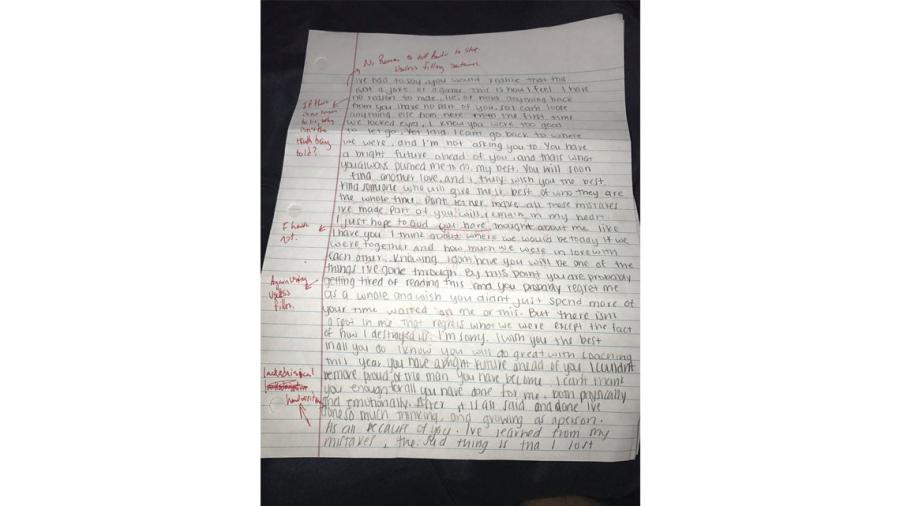 No Reason to
Useless filling sentence.
I've had to say, you would realize that this
isnt a joke, or a game. This is how I feel. I have
no reason to hide, lie, or hold anything back
from you. I have no part of you, so I cant lose
anything else from here. From the first time
we locked eyes, I knew you were too good
to let go. Yet I did. I cant go back to where
we were, and I'm not asking you to. You have
a bright future ahead of you, and thats what
you always pushed me to do, my best. You will soon
find another love, and I truly wish you the best.
Find someone who will give the best of who they are
the whole time. Dont let her make all those mistakes
Ive made. Part of you will remain in my heart.
I just hope to God you have thought about me like
I have you. I think about where we would be today if we
were together and how much we were in love with
each other. Knowing I dont have you will be one of the
things I've gone through. By this point you are probably
getting tired of reading this and you probably regret me
as a whole and wish you didnt just spend more of
your time wasted on me or this. But there isnt
a spot in me that regrets what we were except the fact
of how I destroyed us. I'm sorry. I wish you the best
in all you do. I know you will do great with coaching
this year. You have a bright future ahead of you. I couldn't
be more proud of the man you have become. I cant thank
you enough for all you have done for me, both physically
and emotionally. After it is all said and done Ive
done so much thinking, and growing as a person.
Its all because of you. I've learned from my
mistakes, the sad thing is tha I lost
If there
to lie, why
isn't the
truth being
told?
I have
not.
Again using
useless
filler.
handwriting